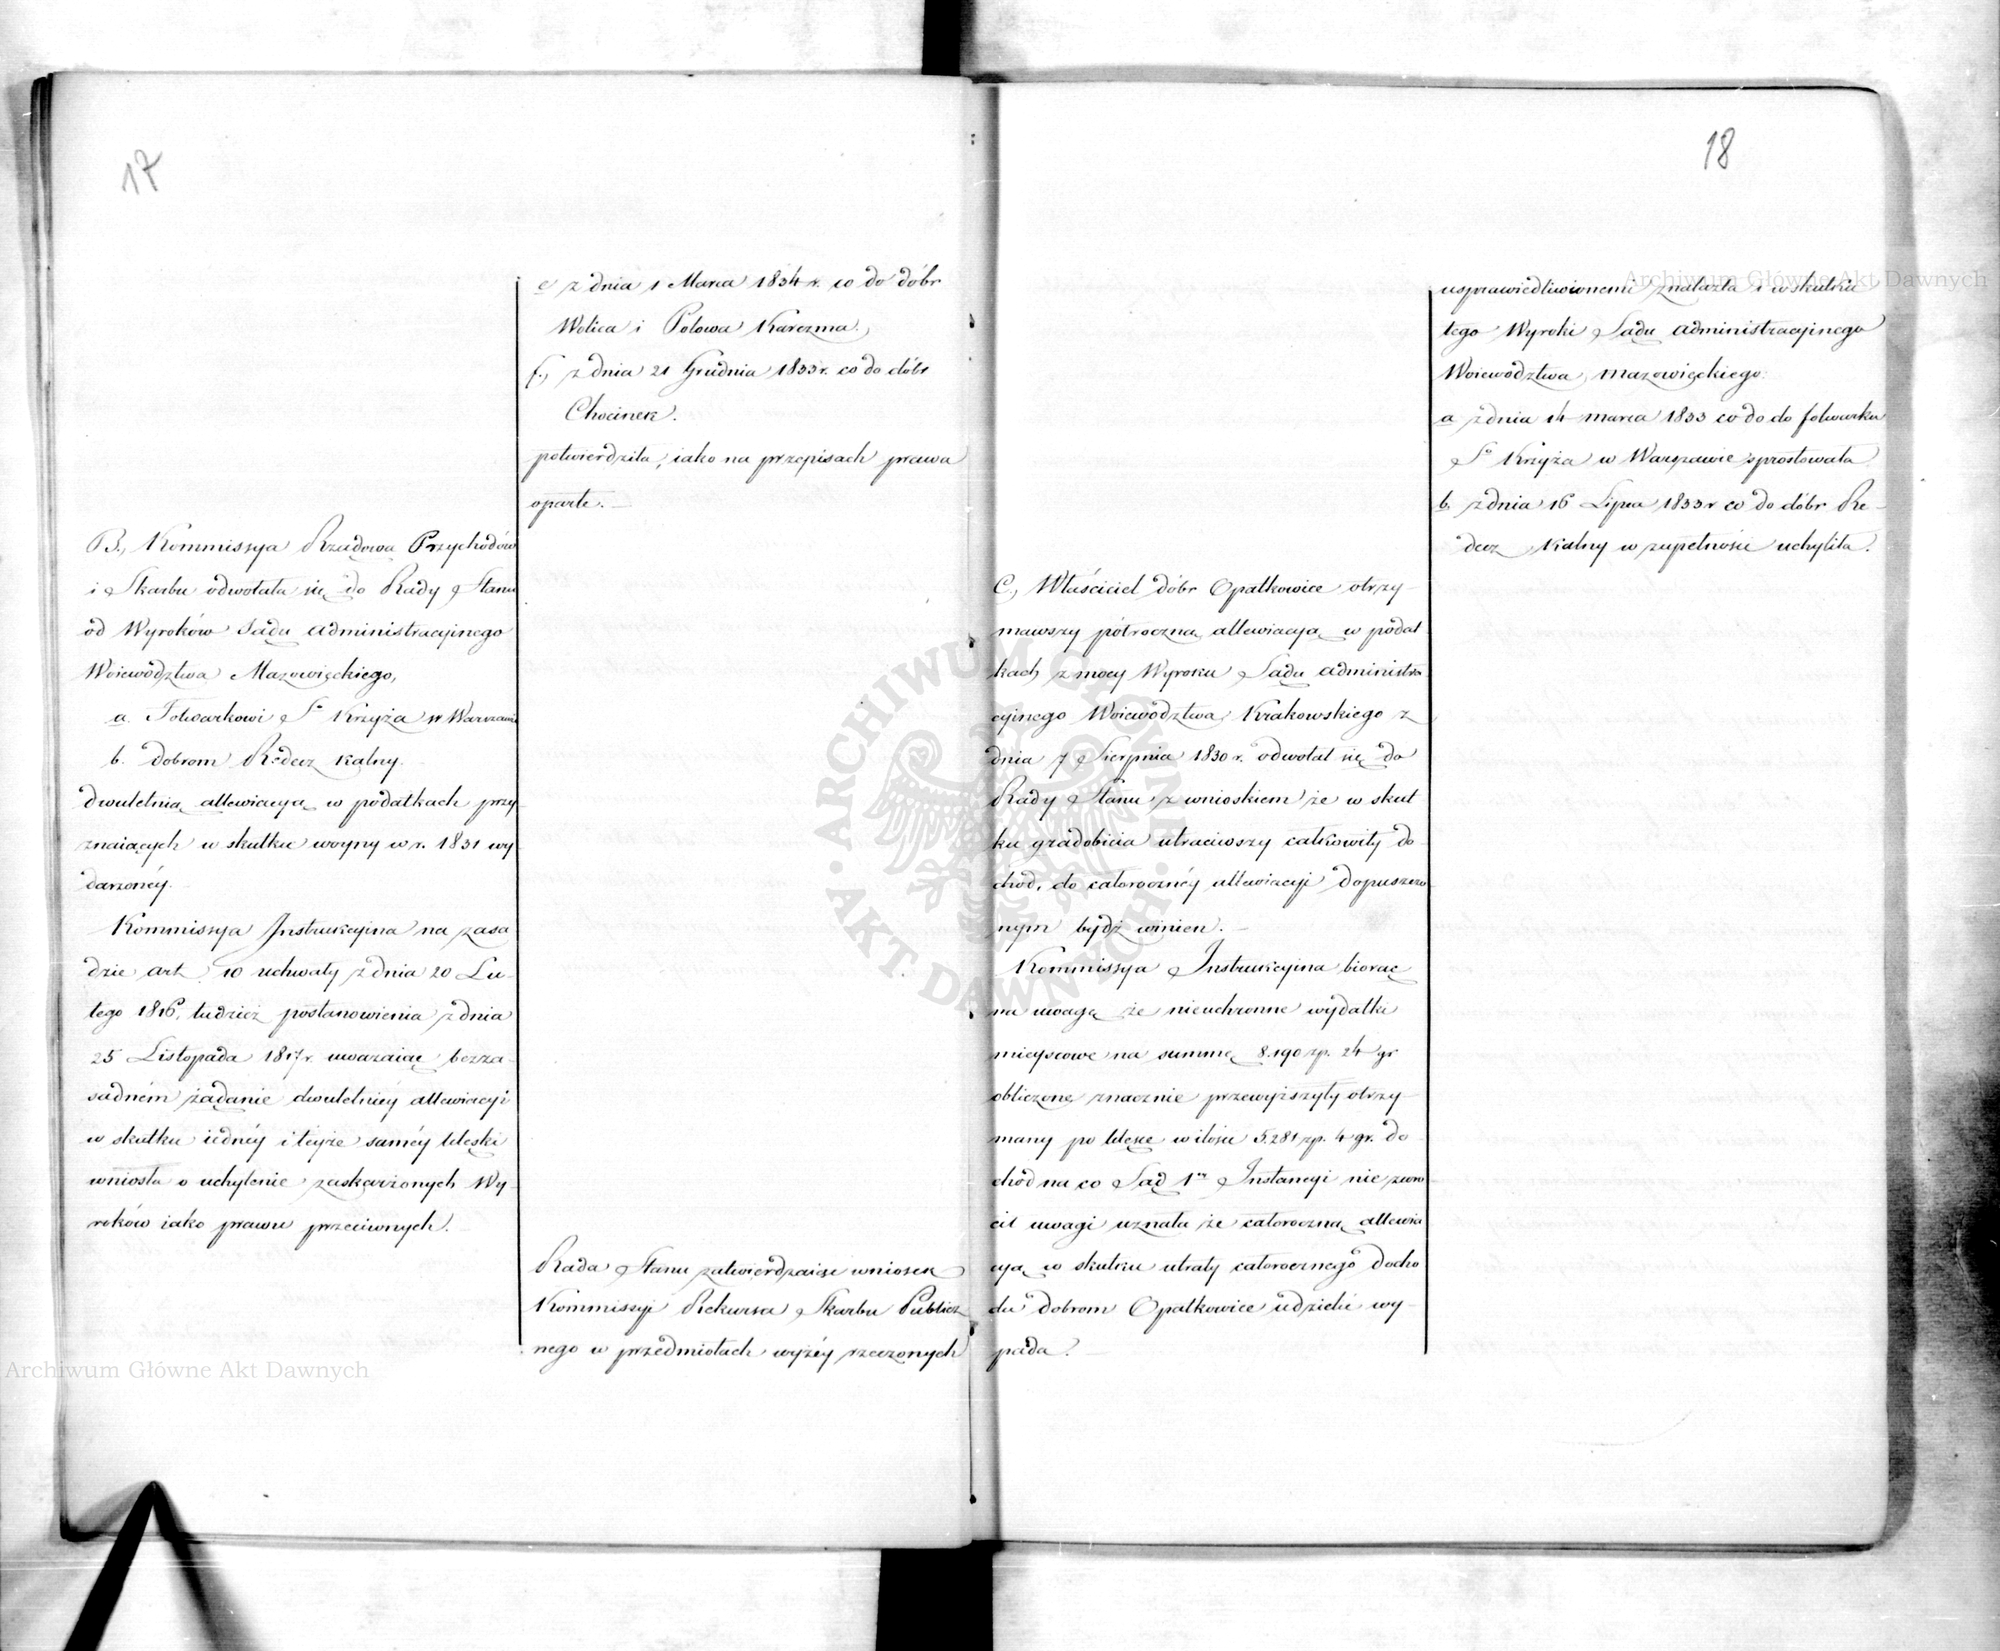 17
e z dnia 1 Marca 1834 r. co do dóbr
Wolica i Polowa Karczma.,
f., z dnia 21 Grudnia 1833 r. co do dóbr
Chocinek.
potwierdziła, iako na przepisach prawa
oparte. —
B., Kommissya Rządowa Przychodów
i Skarbu odwołała się do Rady Stanu
od Wyroków Sądu Administracyjnego
Woiewództwa Mazowieckiego,
a. Folwarkowi Sº Krzyża w Warszawie
b. dobrom Redecz Kalny.
dwuletnią allewiacyą w podatkach przy
znaiących w skutku woyny w r. 1831 wy
darzonéy.
Kommissya Instrukcyjna na zasa
dzie art. 10 uchwały z dnia 20 Lu-
tego 1816, tudzież postanowienia z dnia
25 Listopada 1817 r. uważaiąc bezza-
sadném żądanie dwuletniéy allewiacyi
w skutku iednéy i teyże saméy klęski
wniosła o uchylenie zaskarżonych Wy-
roków iako prawu przeciwnych. —
Rada Stanu zatwierdzaiąc wniosek
Kommissyi Rekursa Skarbu Publicz
nego w przedmiotach wyżéy rzeczonych
18
usprawiedliwionemi znalazła i w skutku
tego Wyroki Sądu Administracyjnego
Woiewództwa Mazowieckiego:
a z dnia 14 marca 1833 co do do folwarku
Sº Krzyża w Warszawie sprostowała
b. z dnia 16 Lipca 1833 r co do dóbr Re-
decz Kalny w zupełności uchyliła.
C., Właściciel dóbr Opatkowice otrzy-
mawszy półroczną allewiacyą w podat-
kach z mocy Wyroku Sądu Administra-
cyjnego Woiewództwa Krakowskiego z
dnia 7 Sierpnia 1830 r. odwołał się do
Rady Stanu z wnioskiem że w skut
ku gradobicia utraciwszy całkowity do-
chód, do całorocznéy allewiacyi dopuszczo
nym bydź winien. —
Kommissya Instrukcyjna biorąc
na uwagę że nieuchronne wydatki
mieyscowe na summę 8.190 zp. 24 gr
obliczone znacznie przewyższyły otrzy-
many po klęsce w ilości 5.281 zp. 4 gr. do-
chód na co Sąd 1ey Instancyi nie zwró
cił uwagi uznała że całoroczną allewia
cyą w skutku utraty całorocznego docho
du dobrom Opatkowice udzielić wy-
pada. —
Archiwum Główne Akt Dawnych
Archiwum Główne Akt Dawnych
ARCHIWUM GŁÓWNE · AKT DAWNYCH ·